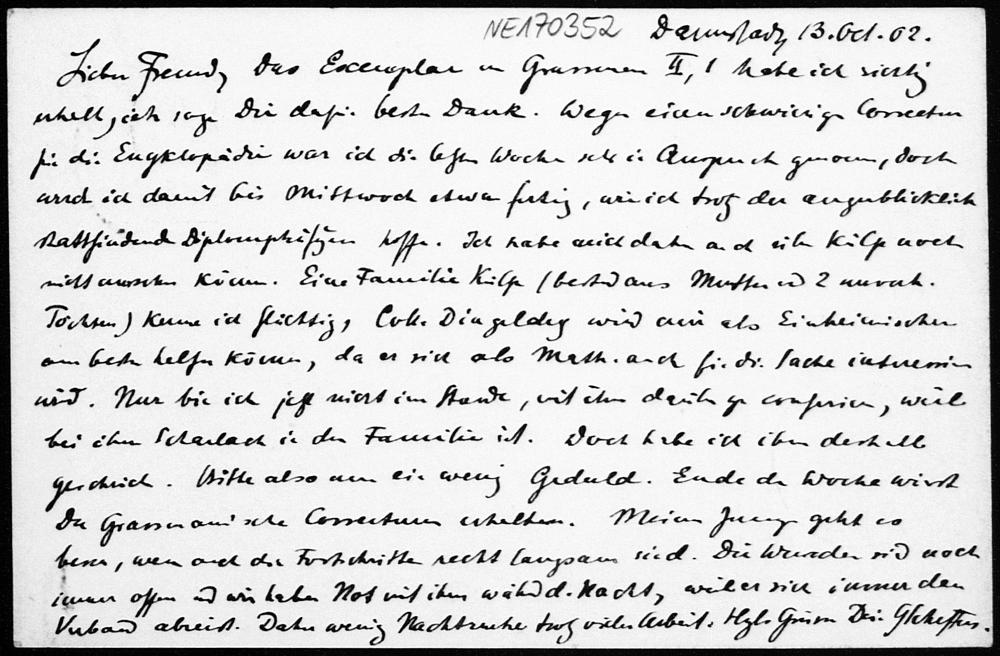 NE170352 Darmstadt, 13. Oct. 02.
Lieber Freund, Das Exemplar v. Grassmann II, 1 habe ich richtig
erhalt., ich sage Dir dafür besten Dank. Wegen einer schwierigen Correctur
für die Encyklopädie war ich die letzten Wochen sehr in Anspruch genommen, doch
werd ich damit bis Mittwoch etwa fertig, wie ich trotz der augenblicklich
stattfindenden Diplomprüfungen hoffe. Ich habe mich daher auch über Külp noch
nicht umsehen können. Eine Familie Külp (bestehd aus Mutter und 2 unverh.
Töchtern) kenne ich flüchtig, Coll. Dingeldey wird mir als Einheimischer
am besten helfen können, da er sich als Math. auch für die Sache interessiren
wird. Nur bin ich jetzt nicht im Stande, mit ihm darüber zu conferiren, weil
bei ihm Scharlach in der Familie ist. Doch habe ich ihm deshalb
geschrieb. Bitte also um ein wenig Geduld. Ende der Woche wirst
Du Grassmann'sche Correcturen erhalten. Meinem Jungen geht es
besser, wenn auch die Fortschritte recht langsam sind. Die Wunden sind noch
immer offen und wir haben Not mit ihm währd d. Nacht, weil er sich immer den
Verband abreisst. Daher wenig Nachtruhe trotz vieler Arbeit. Hzl. Grüsse Dein GScheffers.